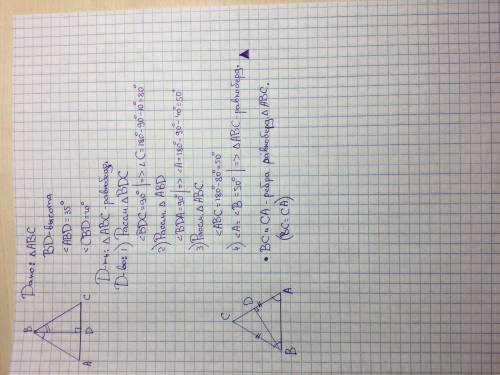 Дано: △ABC
BD-высота
<ABD=35°
<CBD=10°
Д-ть: △ABC-равнобедр.
Д-во: 1) Рассм. △BDC
<BDC=90° | => <C=180°-90°-10°=80°
2) Рассм. △ABD
<BDA=90° | => <A=180°-90°-40°=50°
3) Рассм △ABC
<ABC=180°-80°=50°
4) <A=<B=50° | => △ABC-равнобедр.
• BC и CA - ребра равнобедр △ABC.
(BC=CA)
B
A
D
C
C
D
B
A